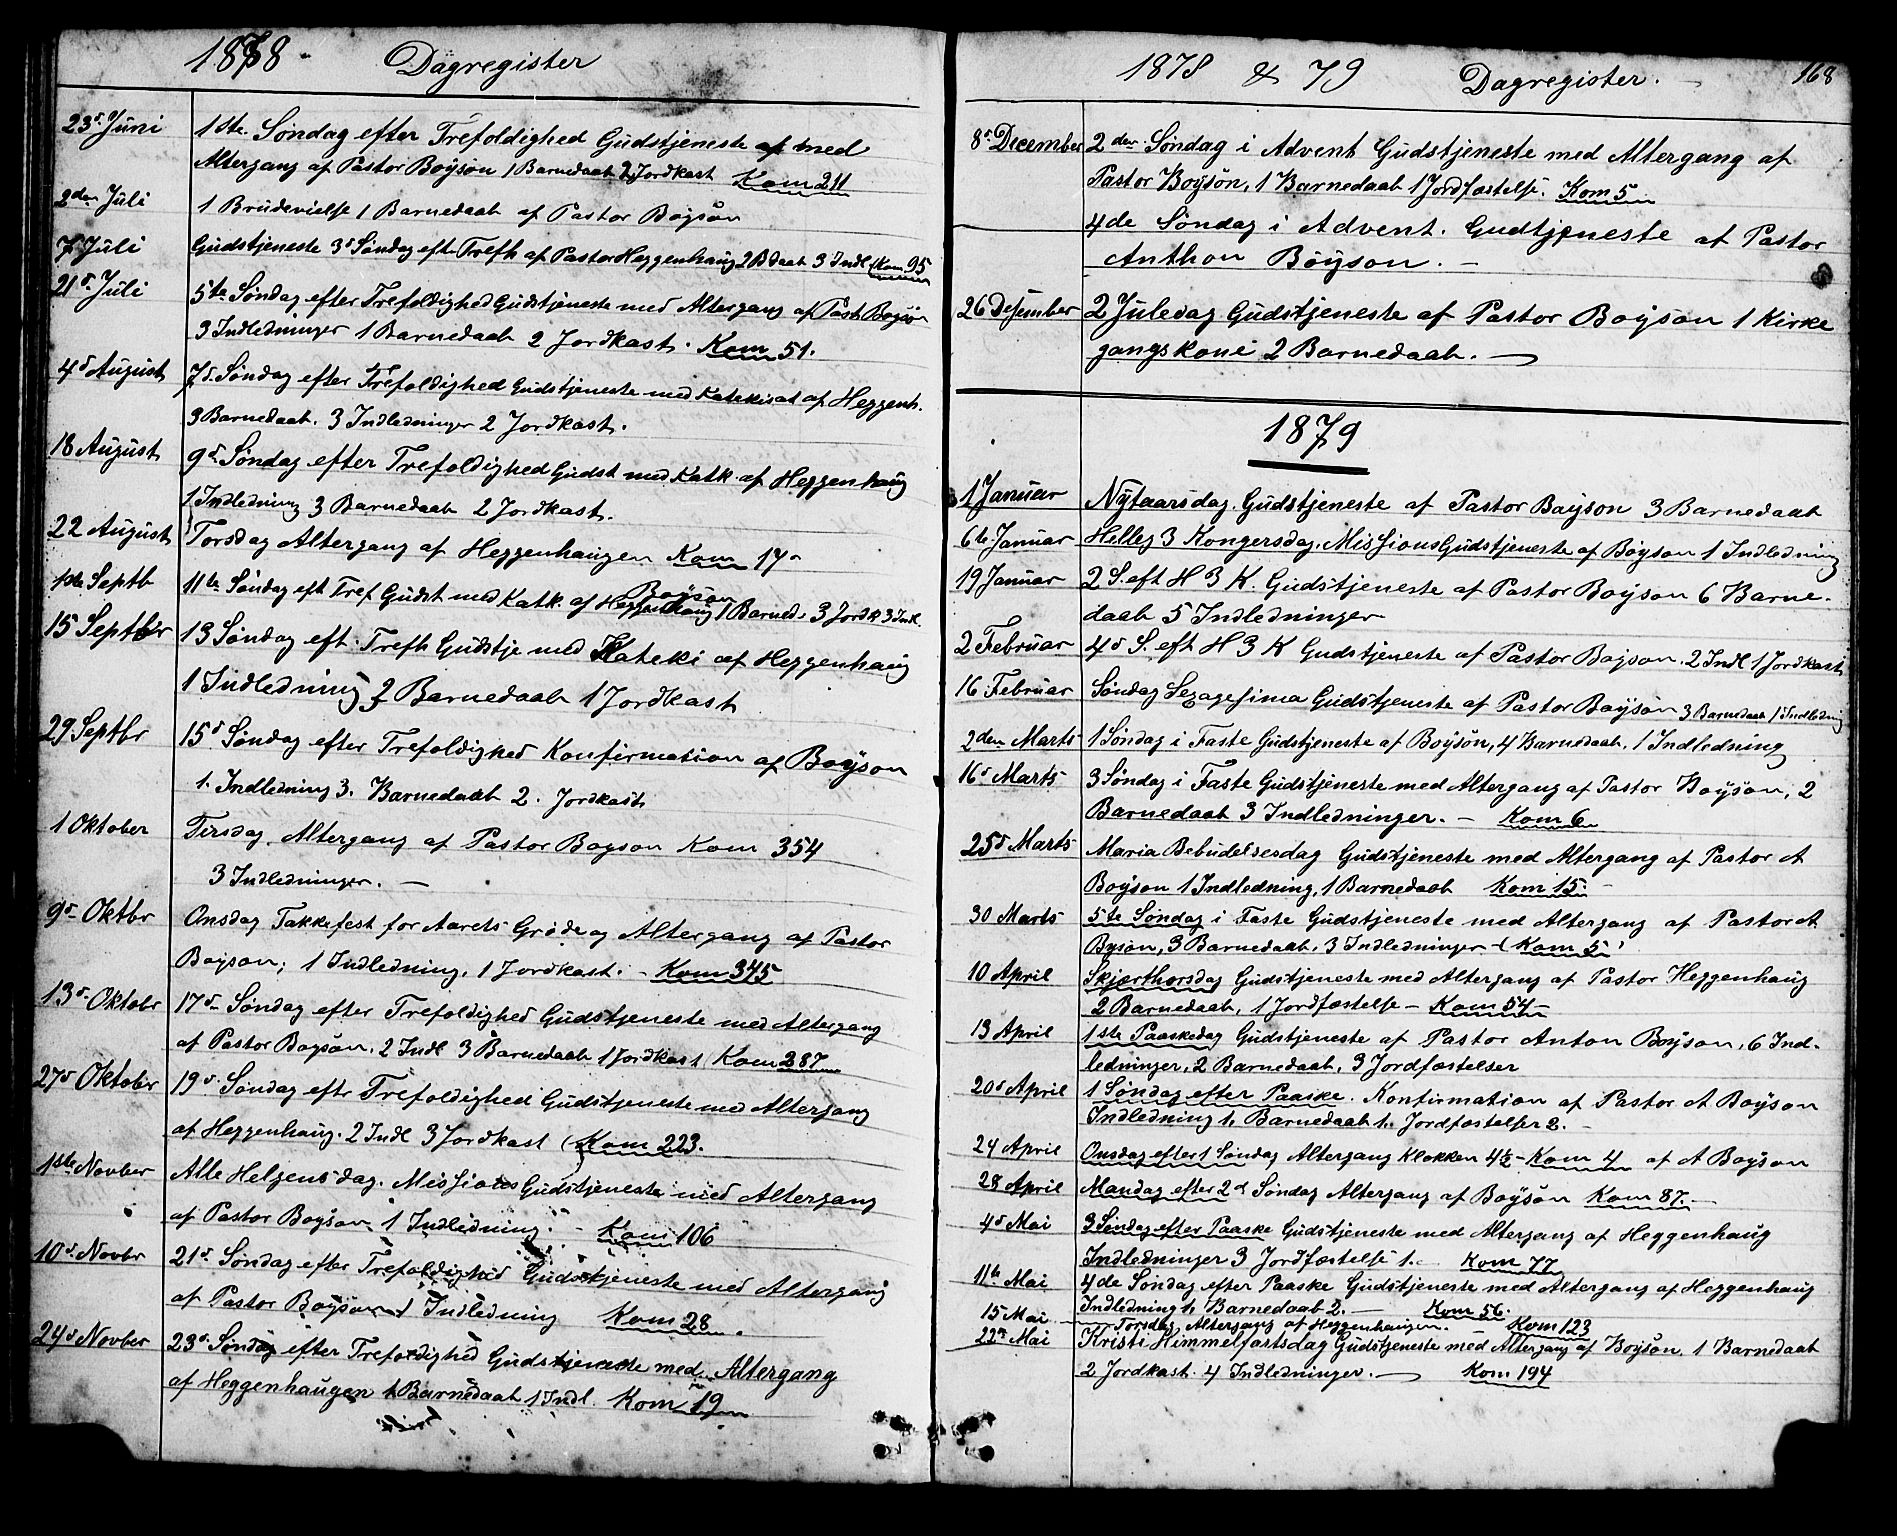 1878. Dagregister
23d Juni 1ste Søndag efter Trefoldighed Gudstjeneste af med
Altergang af Pastor Boyson 1 Barnedaab 2 Jordkast Kom 211
2den Juli 1 Brudevielse 1 Barnedaab af Pastor Boyson
7 Juli Gudstjeneste 3d Søndag eft Trefh af Pastor Heggenhaug 2 B Daab 3 Indl Kom 95
21d Juli 5te Søndag efter Trefoldighed Gudstjeneste med Altergang af Past. Boyson
3 Indledninger 1 Barnedaab 2 Jordkast. Kom 51.
4d August 7d Søndag efter Trefoldighed Gudstjeneste med Katekisat af Heggenh.
3 Barnedaab. 3 Indledninger 2 Jordkast.
18 August 9d Søndag efter Trefoldighed Gudst med Katk. af Heggenhaug
1 Indledning 3 Barnedaab 2 Jordkast.
22 August Torsdag Altergang af Heggenhaugen Kom 17
1ste Septb 11te Søndag eft Tref Gudst med Katk. af Heggenhaug Boyson 1 Barned. 3 Jordk 3 Inl.
15 Septbr 13 Søndag eft. Trefh Gudstje med Kateki af Heggenhaug
1 Indledning 2 Barnedaab 1 Jordkast
29 Septbr 15d Søndag efter Trefoldighed Konfirmation af Boyson
1. Indledning 3. Barnedaab 2. Jordkast
1 Oktober Tirsdag. Altergang af Pastor Boyson Kom 354
3 Indledninger. —
9d Oktbr Onsdag Takkefest for Aarets Grøde og Altergang af Pastor
Boyson; 1 Indledning, 1 Jordkast. - Kom 345
13d Oktobr 17d Søndag efter Trefoldighed Gudstjeneste med Altergang
af Pastor Boyson. 2 Indl 3 Barnedaab 1 Jordkast Kom 287
27d Oktobr 19d Søndag eftr Trefoldighed Gudstjeneste med Altergang
af Heggenhaug. 2 Indl 3 Jordkast (Kom 223.
1ste Novber Alle Helgensdag. Missions Gudstjeneste med Altergang
af Pastor Boyson 1 Indledning. - Kom 106
10d Novbr 21d Søndag efter Trefoldighed Gudstjeneste med Altergang
af Pastor Boyson 1 Indledning Kom 28.
24d Novber 23d Søndag efter Trefoldighed Gudstjeneste med Altergang
af Heggenhaugen 1 Barnedaab 1 Indl. Kom 19
1878 & 79 Dagregister. — 168
8d December 2den Søndag i Advent Gudstjeneste med Altergang af
Pastor Boyson, 1 Barnedaab 1 Jordfæstelse. Kom 5
4de Søndag i Advent. Gudtjeneste af Pastor
Anthon Boyson. —
26 Desember 2 Juledag Gudstjeneste af Pastor Boyson 1 Kirke
gangskone 2 Barnedaab. —
1879
1 Januar Nytaarsdag. Gudstjeneste af Pastor Boyson 3 Barnedaab
6te Januar Helleg 3 Kongersdag. Missions Gudstjeneste af Boyson 1 Indledning
19 Januar 2 S. eft H 3 K. Gudstjeneste af Pastor Boyson 6 Barne-
daab 5 Indledninger
2 Februar 4d S. eft H 3 K Gudstjeneste af Pastor Boyson. 2 Indl 1 Jordkast
16 Februar Søndag Sexagesima Gudstjeneste af Pastor Boyson 3 Barnedaab 1 Indledning
2den Marts 1 Søndag i Faste Gudstjeneste af Boyson, 4 Barnedaab, 1 Indledning
16d Marts 3 Søndag i Faste Gudstjeneste med Altergang af Pastor Boyson, 2
Barnedaab 3 Indledninger. — Kom 6
25d Marts Maria Bebudelsesdag Gudstjeneste med Altergang af Pastor A
Boyson 1 Indledning, 1 Barnedaab Kom 15.
30 Marts 5te Søndag i Faste Gudstjeneste med Altergang af Pastor A
Byson, 3 Barnedaab, 3 Indledninger - (Kom 5
10 April Skjærthorsdag Gudstjeneste med Altergang af Pastor Heggenhaug
2 Barnedaab, 1 Jordfæstelse - Kom 54 -
13 April 1ste Paaskedag Gudstjeneste af Pastor Anton Boyson, 6 Ind-
ledninger, 2 Barnedaab, 3 Jordfæstelser
20d April 1 Søndag efter Paaske. Konfirmation af Pastor A Boyson
Indledning 1, Barnedaab 1. Jordfæstelser 2.
24 April Onsdag efter 1 Søndag Altergang Klokken 4½ - Kom 4 af A Boyson
28 April Mandag efter 2d Søndag Altergang af Boyson Kom 87. -
4d Mai 3 Søndag efter Paaske Gudstjeneste med Altergang af Heggenhaug
Indledninger 3 Jordfæstelse 1. Kom 77
11te Mai 4de Søndag efter Paaske Gudstjeneste med Altergang af Heggenhaug
Indledning 1, Barnedaab 2. — Kom 56.
15 Mai Torsdag Altergang af Heggenhaugen. Kom 123
22n Mai Kristi Himmelfartsdag Gudstjeneste med Altergang af Boyson, 1 Barnedaab
2 Jordkast. 4 Indledninger. — Kom 194